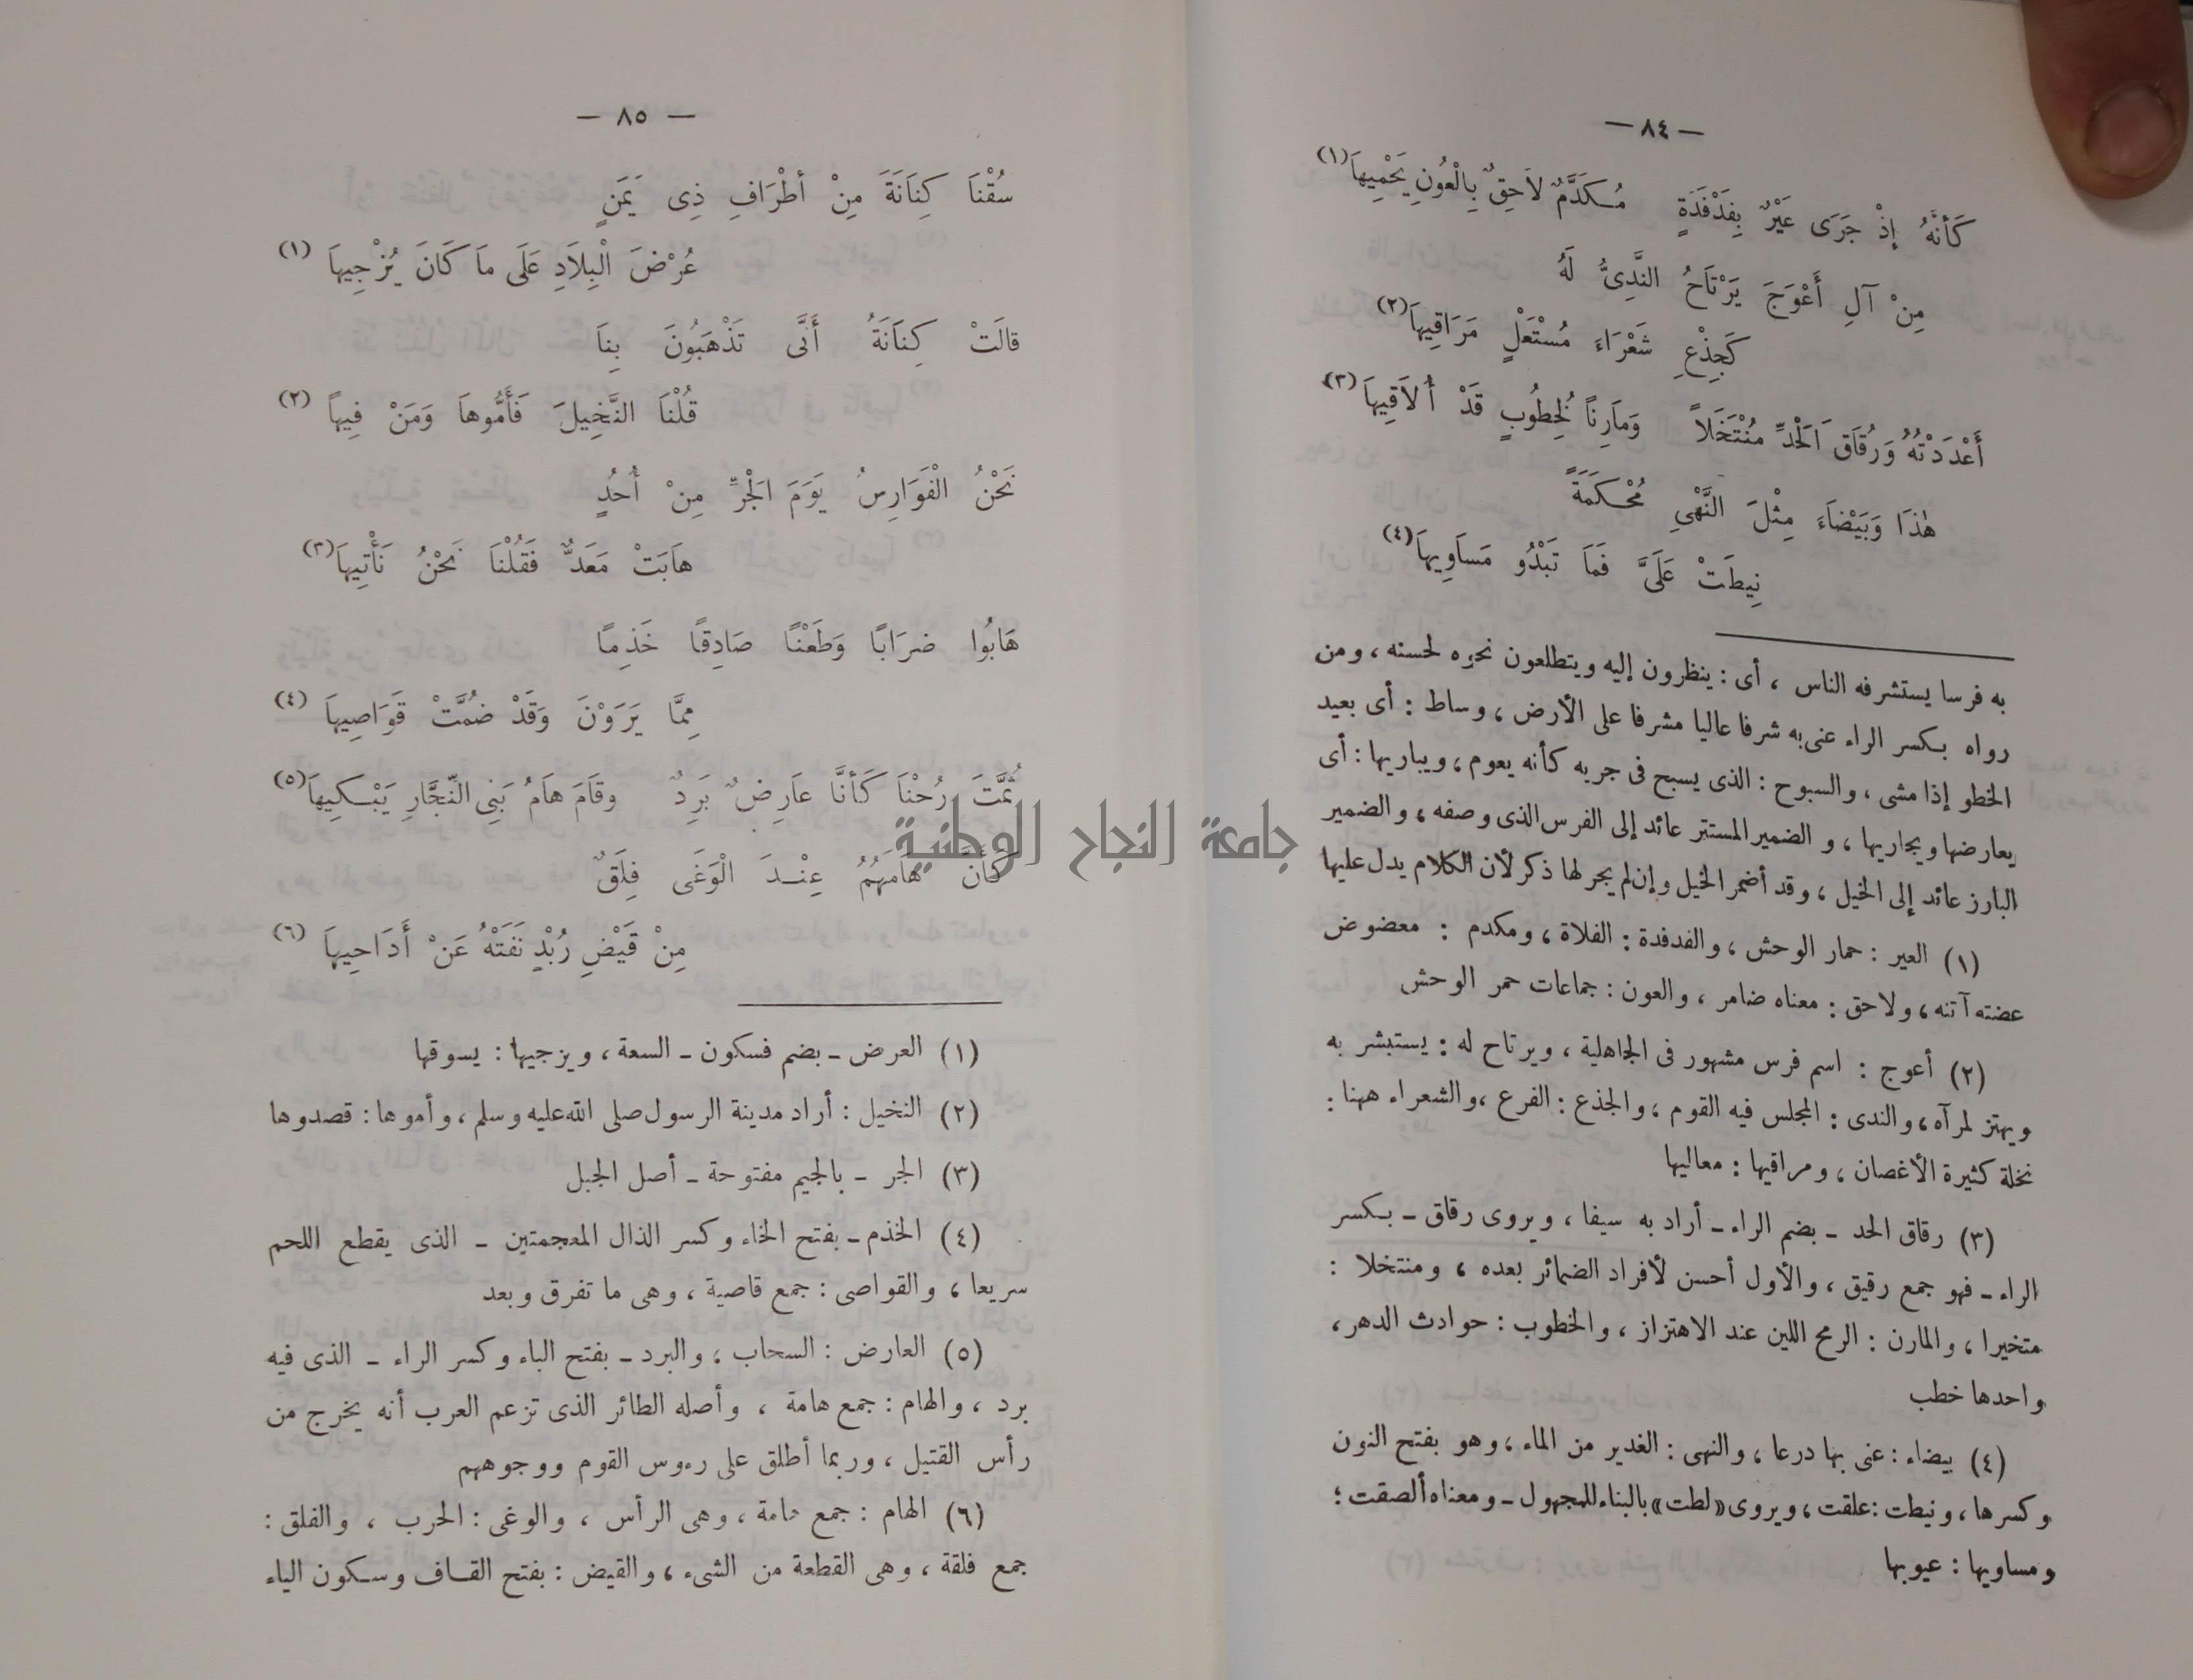 — ٨٤ —
كَأَنَّهُ إِذْ جَرَى عَيْرٌ بِفَدْفَدَةٍ مُكَدَّمٌ لاَحِقٌ بِالْعُونِ يَحْمِيهاَ (١)
مِنْ آلِ أَعْوَجَ يَرْتاَحُ النَّدِىُّ لَهُ
كَجِذْعِ شَعْرَاءَ مُسْتَعْلٍ مَرَاقِيهاَ (٢)
أَعْدَدْتُهُ وَرُقاَقَ الْحَدِّ مُنْتَخَلاً وَمَارِناً لِخُطُوبٍ قَدْ أُلاَقِيهاَ (٣)
هٰذَا وَبَيْضاَءَ مِثْلَ النَّهْىِ مُحْكَمَةً
نِيطَتْ عَلَىَّ فَمَا تَبْدُو مَساَوِيهاَ (٤)
به فرسا يستشرفه الناس ، أى : ينظرون إليه ويتطلعون نحوه لحسنه ، ومن
رواه بكسر الراء عنى به شرفا عاليا مشرفا على الأرض ، وساط : أى بعيد
الخطو إذا مشى ، والسبوح : الذى يسبح فى جريه كأنه يعوم ، ويباريها : أى
يعارضها ويجاريها ، والضمير المستتر عائد إلى الفرس الذى وصفه ، والضمير
البارز عائد إلى الخيل ، وقد أضمر الخيل وإن لم يجر لها ذكر لأن الكلام يدل عليها
(١) العير : حمار الوحش ، والفدفدة : الفلاة ، ومكدم : معضوض
عضته آتنه ، ولاحق : معناه ضامر ، والعون : جماعات حمر الوحش
(٢) أعوج : اسم فرس مشهور فى الجاهلية ، ويرتاح له : يستبشر به
ويهتز لمرآه ، والندى : المجلس فيه القوم ، والجذع : الفرع ، والشعراء ههنا :
نخلة كثيرة الأغصان ، ومراقيها : معاليها
(٣) رقاق الحد – بضم الراء – أراد به سيفا ، ويروى رقاق – بكسر
الراء – فهو جمع رقيق ، والأول أحسن لأفراد الضمائر بعده ، ومنتخلا :
متخيرا ، والمارن : الرمح اللين عند الاهتزاز ، والخطوب : حوادث الدهر ،
واحدها خطب
(٤) بيضاء : عنى بها درعا ، والنهى : الغدير من الماء ، وهو بفتح النون
وكسرها ، ونيطت : علقت ، ويروى «لطت» بالبناء للمجهول – ومعناه ألصقت ؛
ومساويها : عيوبها
— ٨٥ —
سُقْناَ كِنَانَةَ مِنْ أَطْرَافِ ذِى يَمَنٍ
عُرْضَ الْبِلاَدِ عَلَى ماَ كَانَ يُزْجِيهاَ (١)
قالَتْ كِنَانَةُ أَنَّى تَذْهَبُونَ بِناَ
قُلْناَ النَّخِيلَ فَأَمُّوهاَ وَمَنْ فِيهاَ (٢)
نَحْنُ الْفَوَارِسُ يَوَمَ الْجَرِّ مِنْ أُحُدٍ
هاَبَتْ مَعَدٌّ فَقُلْناَ نَحْنُ نَأْتِيهاَ (٣)
هَابُوا ضرَابًا وَطَعْنًا صَادِقًا خَذِمًا
مِمَّا يَرَوْنَ وَقَدْ ضُمَّتْ قَوَاصِيهاَ (٤)
ثُمَّتَ رُحْنَا كَأنَّا عَارِضٌ بَرِدٌ وقَامَ هَامُ بَنِى النَّجَّارِ يَبْكِيهاَ (٥)
كَأَنَّ هَامَهُمُ عِنْدَ الْوَغَى فِلَقٌ
مِنْ قَيْضِ رُبْدٍ نَفَتْهُ عَنْ أَدَاحِيهاَ (٦)
(١) العرض – بضم فسكون – السعة ، ويزجيها : يسوقها
(٢) النخيل : أراد مدينة الرسول صلى الله عليه وسلم ، وأموها : قصدوها
(٣) الجر – بالجيم مفتوحة – أصل الجبل
(٤) الخذم – بفتح الخاء وكسر الذال المعجمتين – الذى يقطع اللحم
سريعا ، والقواصى : جمع قاصية ، وهى ما تفرق وبعد
(٥) العارض : السحاب ، والبرد – بفتح الباء وكسر الراء – الذى فيه
برد ، والهام : جمع هامة ، وأصله الطائر الذى تزعم العرب أنه يخرج من
رأس القتيل ، وربما أطلق على رءوس القوم ووجوههم
(٦) الهام : جمع هامة ، وهى الرأس ، والوغى : الحرب ، والفلق :
جمع فلقة ، وهى القطعة من الشىء ، والقيض : بفتح القاف وسكون الياء
جامعة النجاح الوطنية